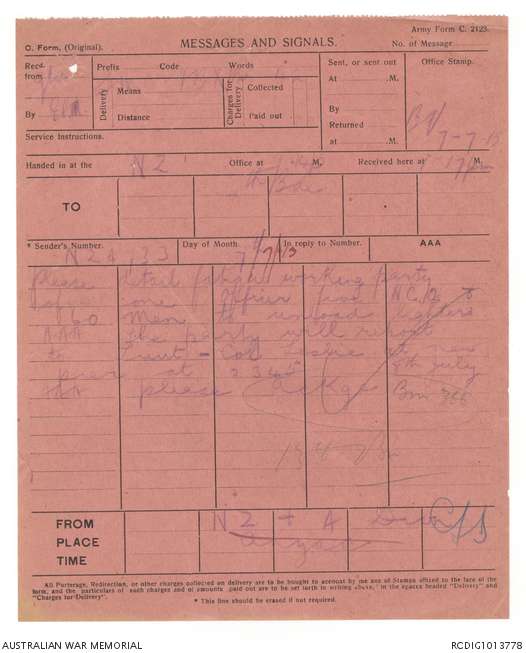 Army Form C. 2123.
C. Form, (Original).
MESSAGES AND SIGNALS.
No. of Message
Recd. from
By
Prefix Code Words
Delivery
Means
Distance
Charges for Delivery
Collected
Paid out
Sent, or sent out
At .M.
By
Returned
at .M.
Office Stamp.
7-7-15
Service Instructions.
Handed in at the NZ Office at .M. Received here at .M.
TO
Bde
* Sender's Number.
Day of Month
In reply to Number.
AAA
7/7/15
Please detail fatigue working party
of one Officer five NCO's &
60 men to unload lighters
AAA the party will report
to Lieut-Col at new
pier at 2345 8th July
AAA please
Bm 366
FROM
PLACE
TIME
NZ + A Div
Anzac
All Porterage, Redirection, or other charges collected on delivery are to be brought to account by means of Stamps affixed to the face of the
form, and the particulars of such charges and of amounts paid out are to be set forth in writing above, in the spaces headed "Delivery" and
"Charges for Delivery".
* This line should be erased if not required.
AUSTRALIAN WAR MEMORIAL
RCDIG1013778